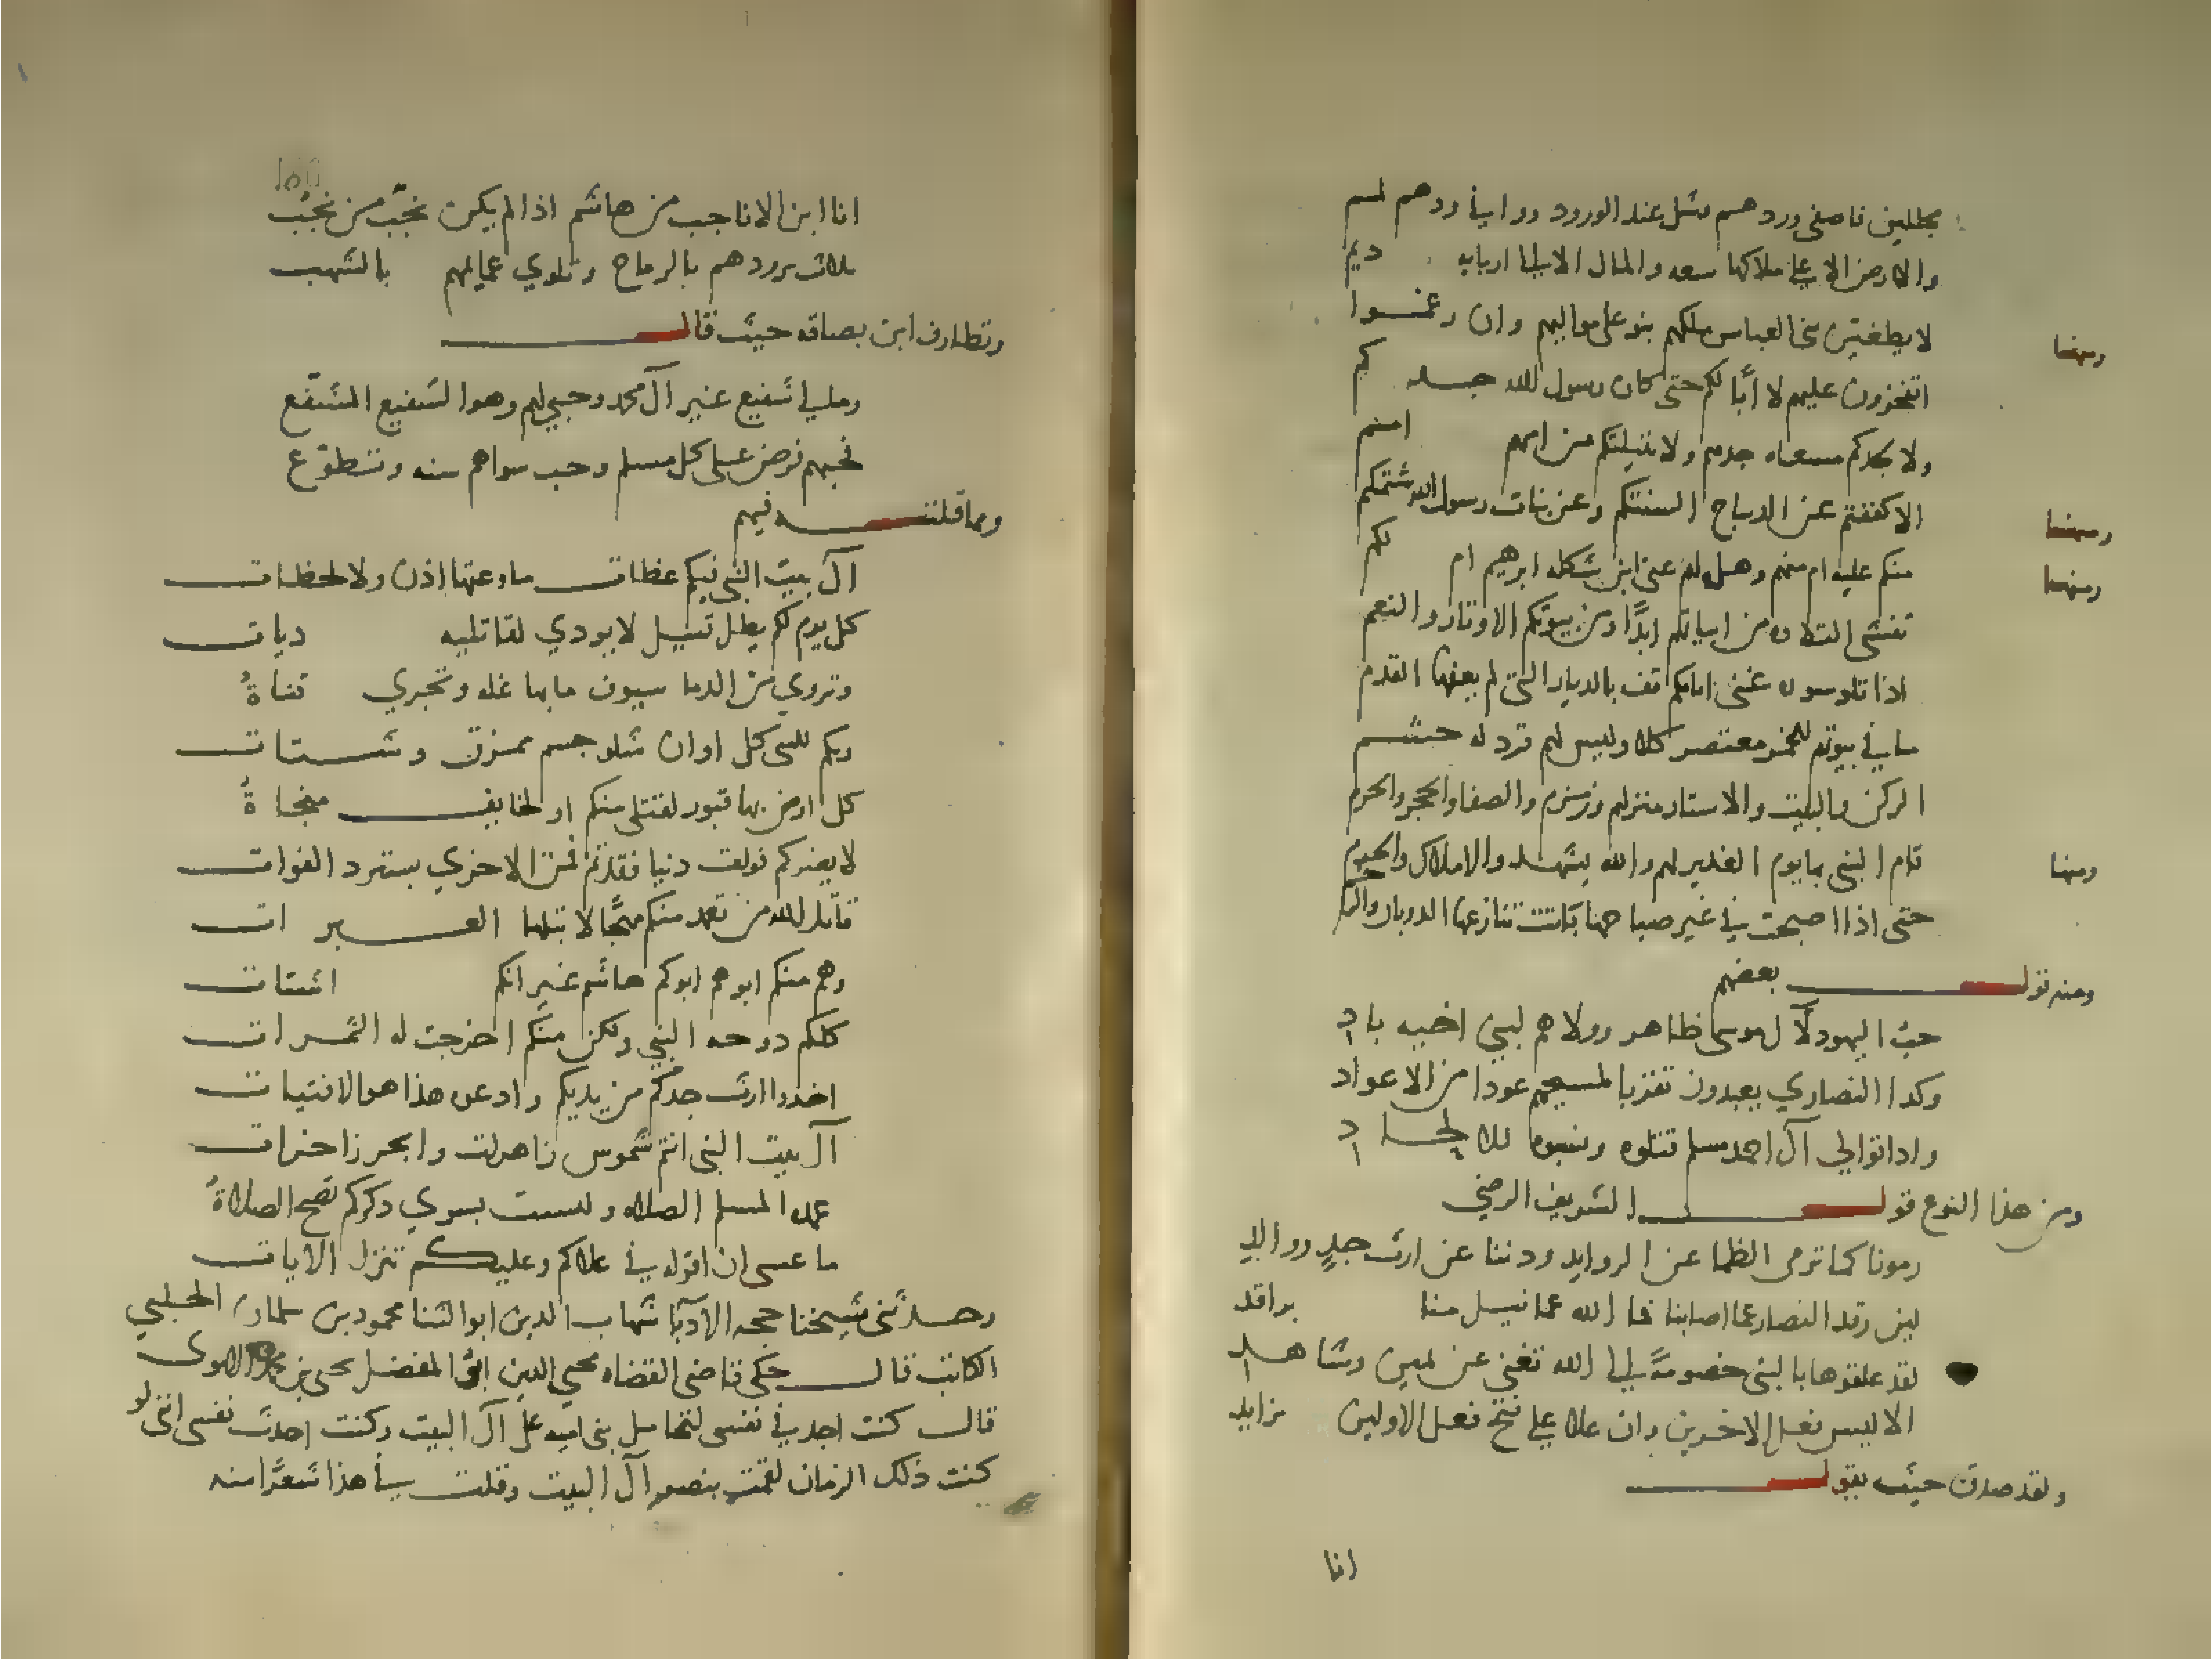 مجللين فاصفى وردهم وشل عند الورود ووافي ودهم لمم
والارض الا على ملاكها سعه والمال الا لها اربابه ديم
ومنها
لا يطغين بني العباس ملكهم بنو على مواليهم وان رغموا
اتفخرون عليهم لا ابا لكم حتى كان رسول الله جدكم
ولا لجدكم مسعاه جدهم ولا نثيلتكم من امهم امم
ومنها
الا كففتم عن الديباج السنتكم وعن بنات رسول الله شتمكم
ومنها
منكم عليه ام منهم وهل لهم عن ابن شكله ابرهيم ام لكم
تفشى التلاوه من ابياتهم ابدًا ومن بيوتكم الاوتار والنغم
اذا تلوا سوره غنى امامكم قف بالديار التي لم يعفها القدم
ما في بيوتهم للخمر معتصر كلا وليس لهم قرد له حشم
الركن والبيت والاستار منزلهم وزمزم والصفا والحجر والحرم
ومنها
قام النبي بها يوم الغدير لهم والله يشهد والاملاك والامم
حتى اذا اصبحت في غير صاحبها باتت تنازعها الذوبان والرخم
ومنه قول بعضهم
حبّ اليهود لآل موسى ظاهر وولاهم لبني اخيه باد
وكدا النصاري يعبدون تقربا لمسيحهم عودا من الاعواد
واداتوالي آل احمد مسلم قتلوه ونسبوه للالحاد
ومن هذا النوع قول الشريف الرضي
رمونا كما ترمى الظما عن الروايد وددننا عن ارث جدٍ ووالد
لين رقد النصار عما اصابنا فما الله عما نيل منا براقد
لقد علقوها بالنبي خصومةً الى الله تغني عن يمين وشاهد
الا ليس فعل الاخرين وان علا على قبح فعل الاولين بزايد
ولقد صدق حيث يقول
انا
انا ابن الاناجب من هاشم اذا لم يكن نجّب من نجُب
ثلاث برودهم بالرماح وتلوي عمايمهم بالشهب
وتظارف ابن بصاقه حيث قال
ومالي شفيع غير آل محمد وحبي لهم وهو الشفيع المشفّع
فحبهم فرض على كل مسلم وحب سواهم سنه وتطوّع
ومما قلته فيهم
آل بيت النبي فيكم عظات ما وعتها اذن ولا لحظات
كل يوم لكم يطل قتيل لا يودي لقاتليه ديات
وتروي من الدما سيوف ما بها غله وتجري قناةُ
وبكم للبي كل اوان شلو جسم ممزق وشتات
كل ارض بها قبور لقتلى منكم او لخايف منجاةُ
لا يضركم فوات دنيا فقدتم فمن الاخري يسترد الفوات
قاتل الله من تعمد منكم مهجًا لا تبلها العبرات
وهم منكم ابوهم ابوكم هاشم غير انكم اشتات
كلكم دوحه النبي ولكن منكم اخرجت له الثمرات
اخذوا ارث جدكم من يديكم وادعوه هذا هو الافتيات
آل بيت النبي انتم شموس زاهرات وابحر زاخرات
عمده المسلم الصلاه وليست بسوي ذكركم تصح الصلاةُ
ما عسى ان اقوله في علاكم وعليكم تنزل الايات
وحدّثني شيخنا حجه الادبا شهاب الدين ابو الثنا محمود بن سلمان الحلبي
الكاتب قال حكي قاضي القضاه محيي الدين ابو المفضل يحيى بن محمد الاموى
قال كنت اجد في نفسي لتحامل بني اميه على آل البيت وكنت احدث نفسي انني لو
كنت ذلك الزمان لقمت بنصر آل البيت وقلت في هذا شعرًا منه